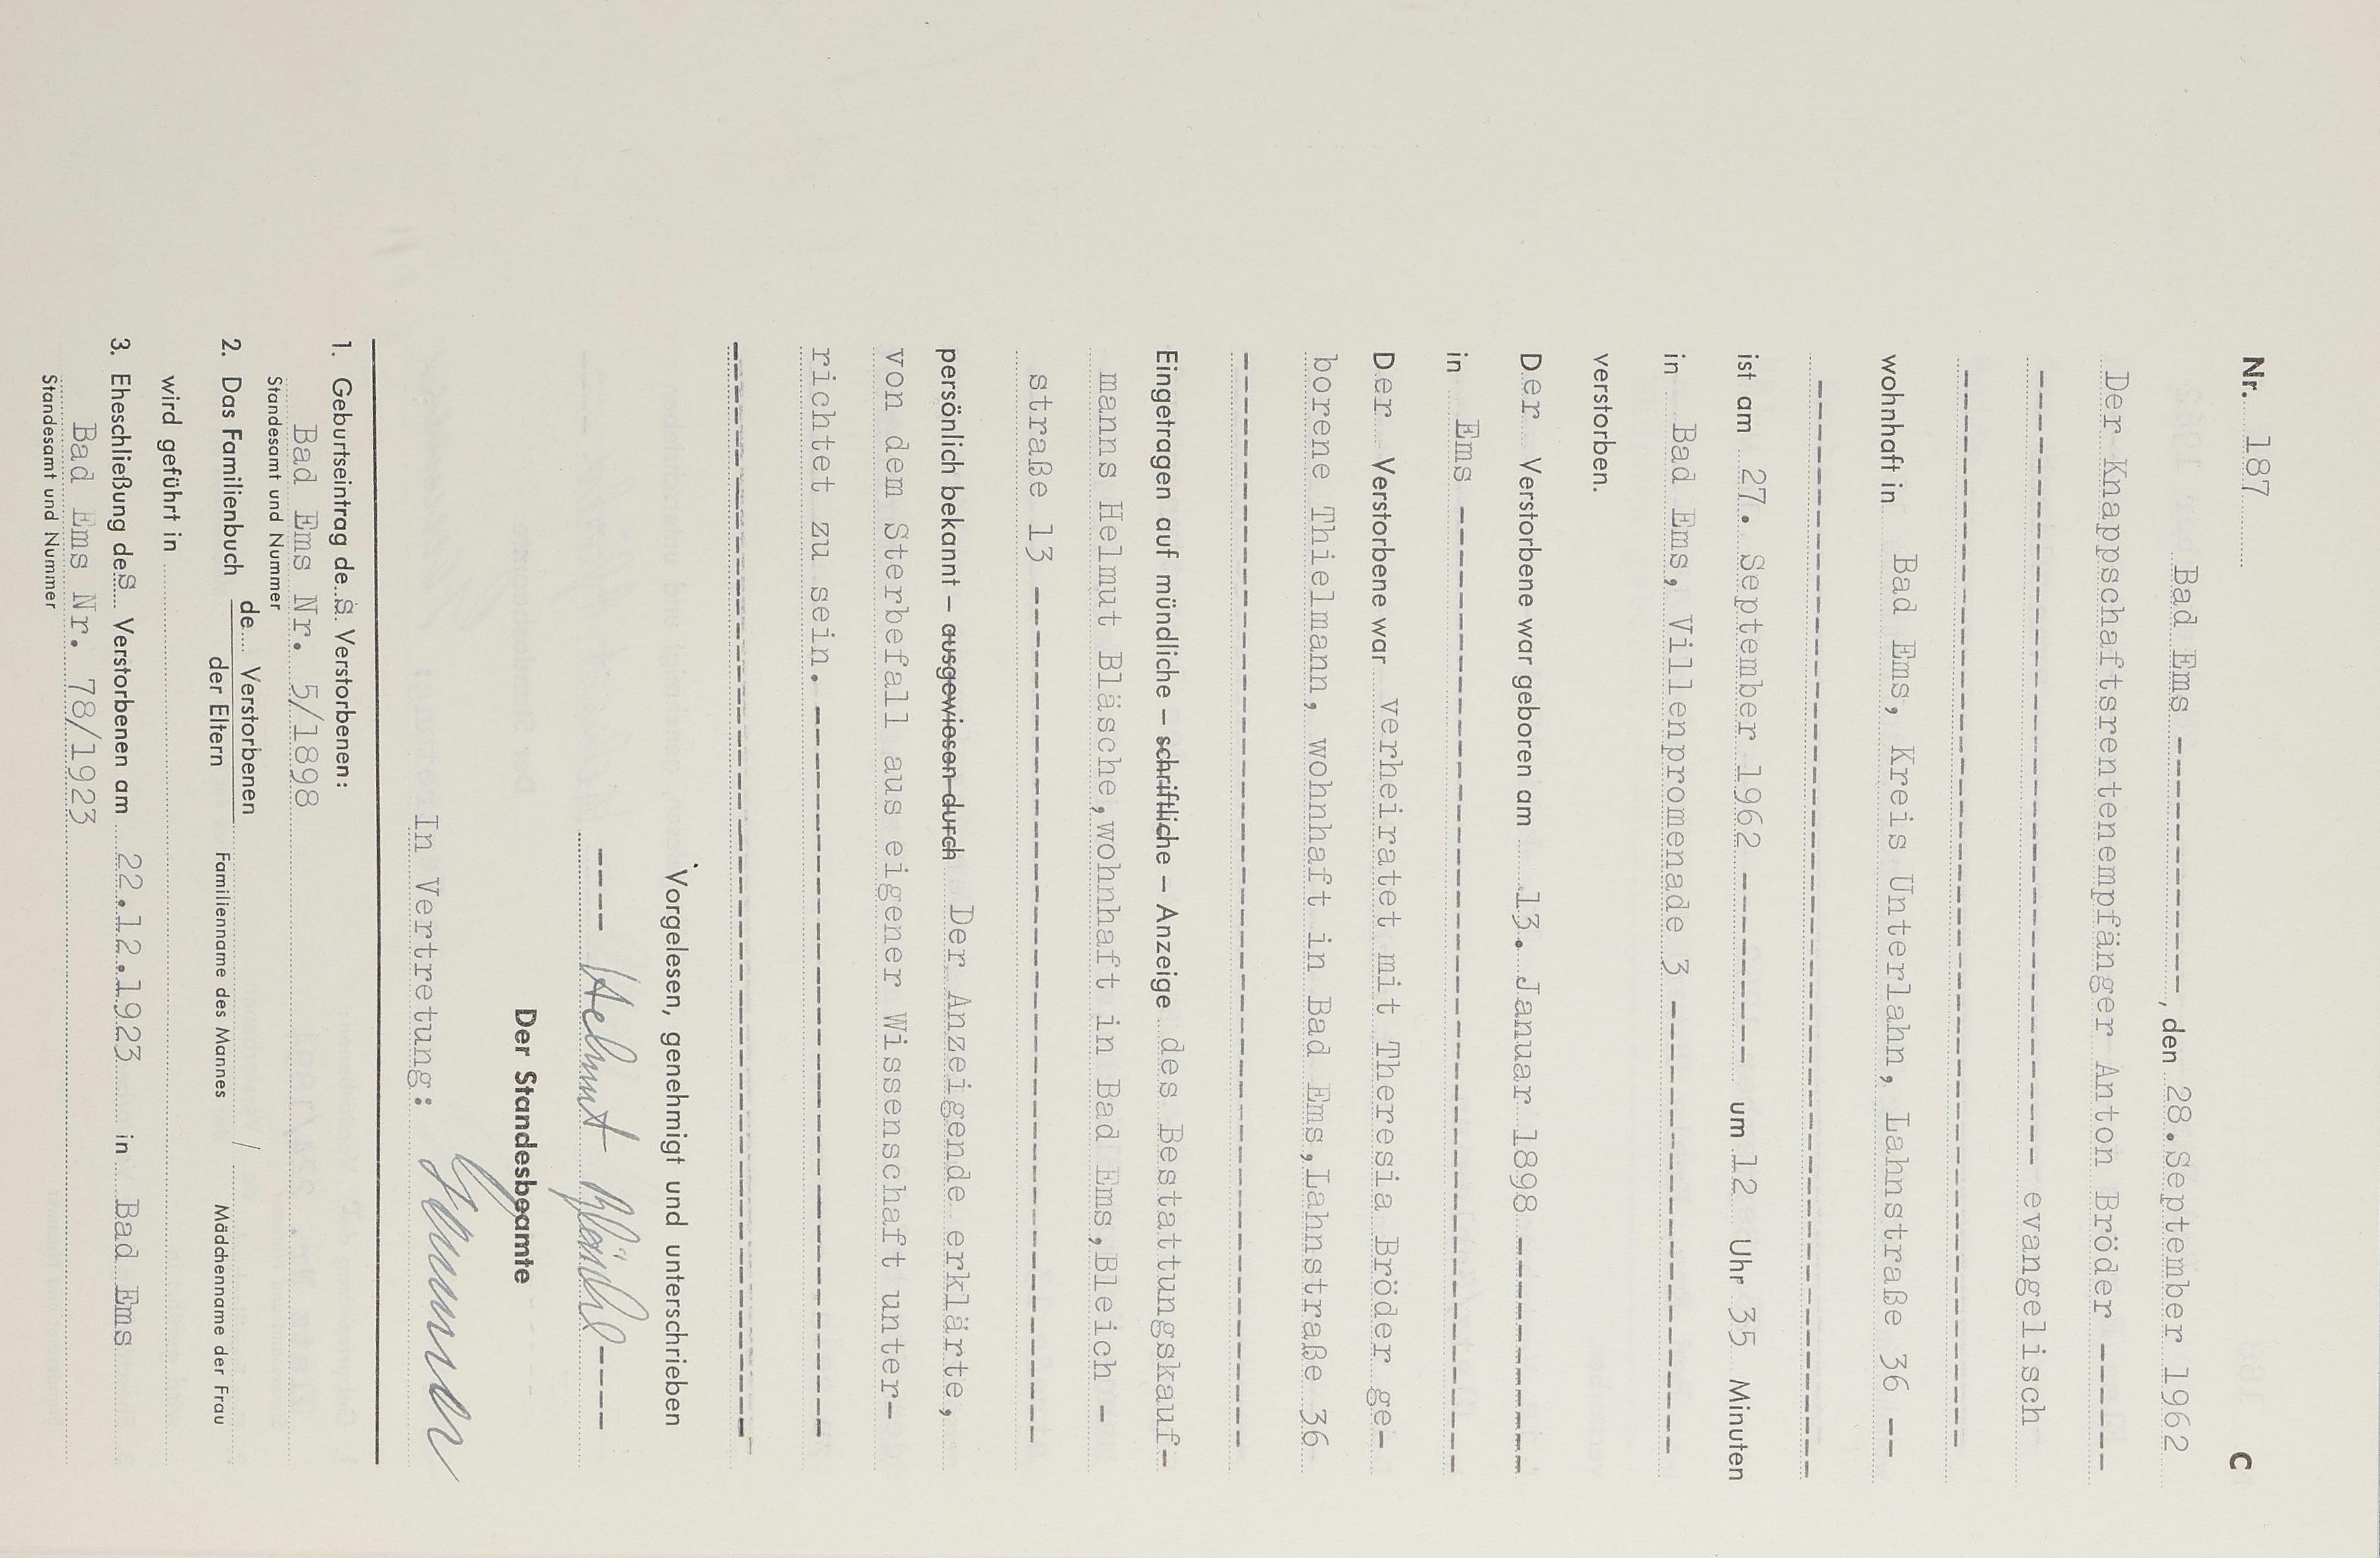 Nr. 187 C
Bad Ems ----------------, den 28.September 1962
Der Knappschaftsrentenempfänger Anton Bröder --------
---------------------------------------- evangelisch
----------------------------------------------------
wohnhaft in Bad Ems, Kreis Unterlahn, Lahnstraße 36 --
----------------------------------------------------
ist am 27. September 1962 ------------ um 12 Uhr 35 Minuten
in Bad Ems, Villenpromenade 3 ----------------------
verstorben.
Der Verstorbene war geboren am 13. Januar 1898 --------------
in Ems ----------------------------------------------
Der Verstorbene war verheiratet mit Theresia Bröder ge-
borene Thielmann, wohnhaft in Bad Ems,Lahnstraße 36
----------------------------------------------------
Eingetragen auf mündliche – schriftliche – Anzeige des Bestattungskauf-
manns Helmut Bläsche,wohnhaft in Bad Ems,Bleich -
straße 13 ------------------------------------------
persönlich bekannt – ausgewiesen durch Der Anzeigende erklärte,
von dem Sterbefall aus eigener Wissenschaft unter-
richtet zu sein. -----------------------------------
----------------------------------------------------
Vorgelesen, genehmigt und unterschrieben
---- Helmut Bläsche ----
Der Standesbeamte
In Vertretung:
1. Geburtseintrag des Verstorbenen:
Bad Ems Nr. 5/1898
Standesamt und Nummer
2. Das Familienbuch de Verstorbenen
der Eltern
/
Familienname des Mannes Mädchenname der Frau
wird geführt in
3. Eheschließung des Verstorbenen am 22.12.1923 in Bad Ems
Bad Ems Nr. 78/1923
Standesamt und Nummer